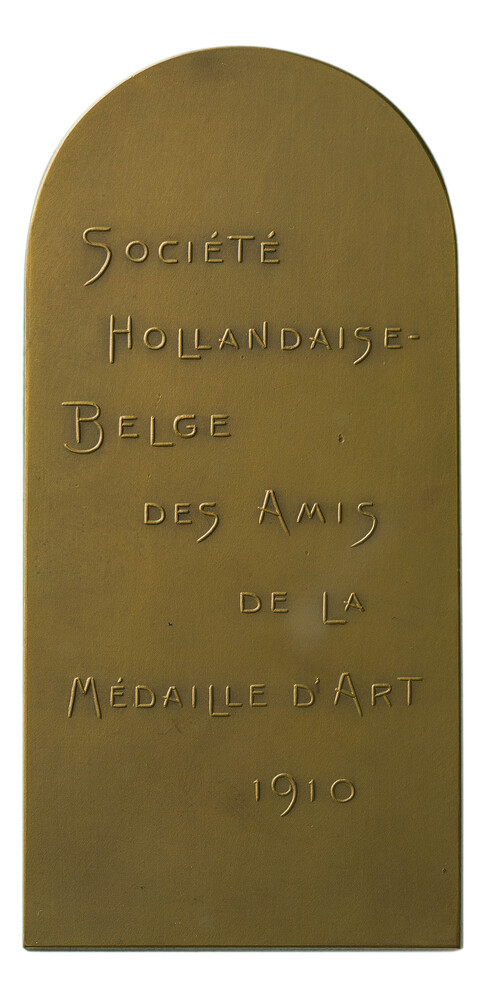 SOCIÉTÉ
HOLLANDAISE-
BELGE
DES AMIS
DE LA
MÉDAILLE D'ART
1910